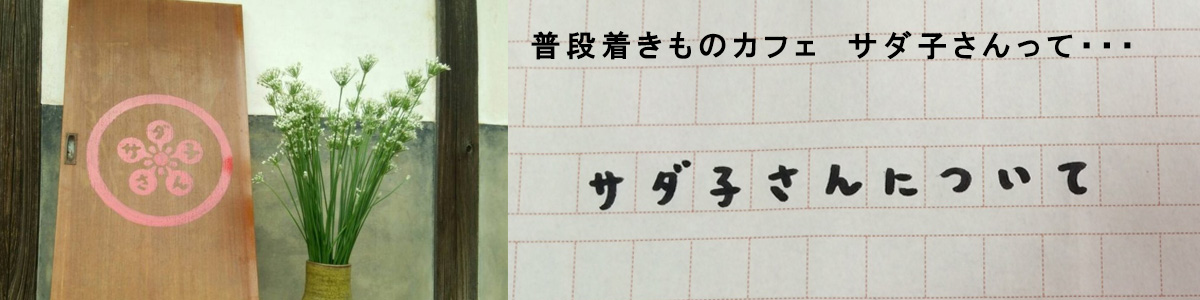 サダ子さん
普段着きものカフェ　サダ子さんって・・・
サダ子さんについて